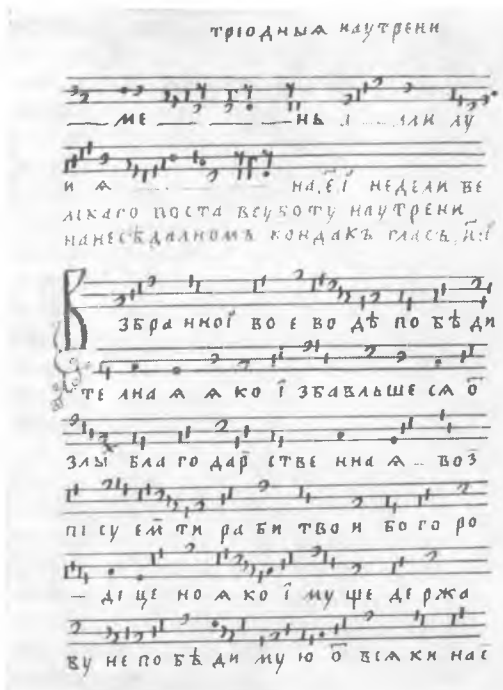 трїодныѧ наутрени
ме нь ѧ лли лу
и ѧ на.е҃ї недели ве
лїкаго поста всуботу наутрени
нанесѣдалномъ кондакъ гласъ. и҃:
Взбранної воеводѣ побѣди
телнаѧ ѧко їзбавльшесѧ ѿ
злы благодар ственнаѧ воз
пїсуем ти раби твои богоро
дїце но ѧко їмуще держа
ву непобѣдимую ѿ всѧки нас